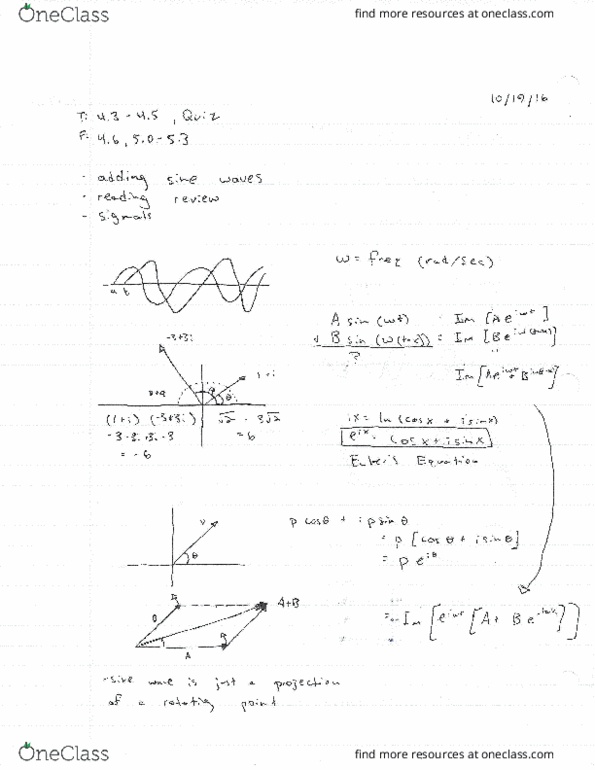 OneClass
find more resources at oneclass.com
10/19/16
T: 4.3 - 4.5 , Quiz
F: 4.6, 5.0 - 5.3
- adding sine waves
- reading review
- signals
ω = freq (rad/sec)
a b
A sin (ωt) = Im [A e^iωt]
+ B sin (ω(t-z)) = Im [B e^iω
?
Im [A e^iωt + B
-3+3i
1+i
θ
(1+i) (-3+3i)
√2 · 3√2
-3 -3i +3i -3
= 6
= -6
ix = ln (cosx + isinx)
e^ix = cosx + isinx
Euler's Equation
v
θ
p cosθ + i p sin θ
= p [cos θ + i sinθ]
= p e^iθ
B
A+B
A
= Im [e^iωt [A + B e
- sine wave is just a projection
of a rotating point
OneClass
find more resources at oneclass.com